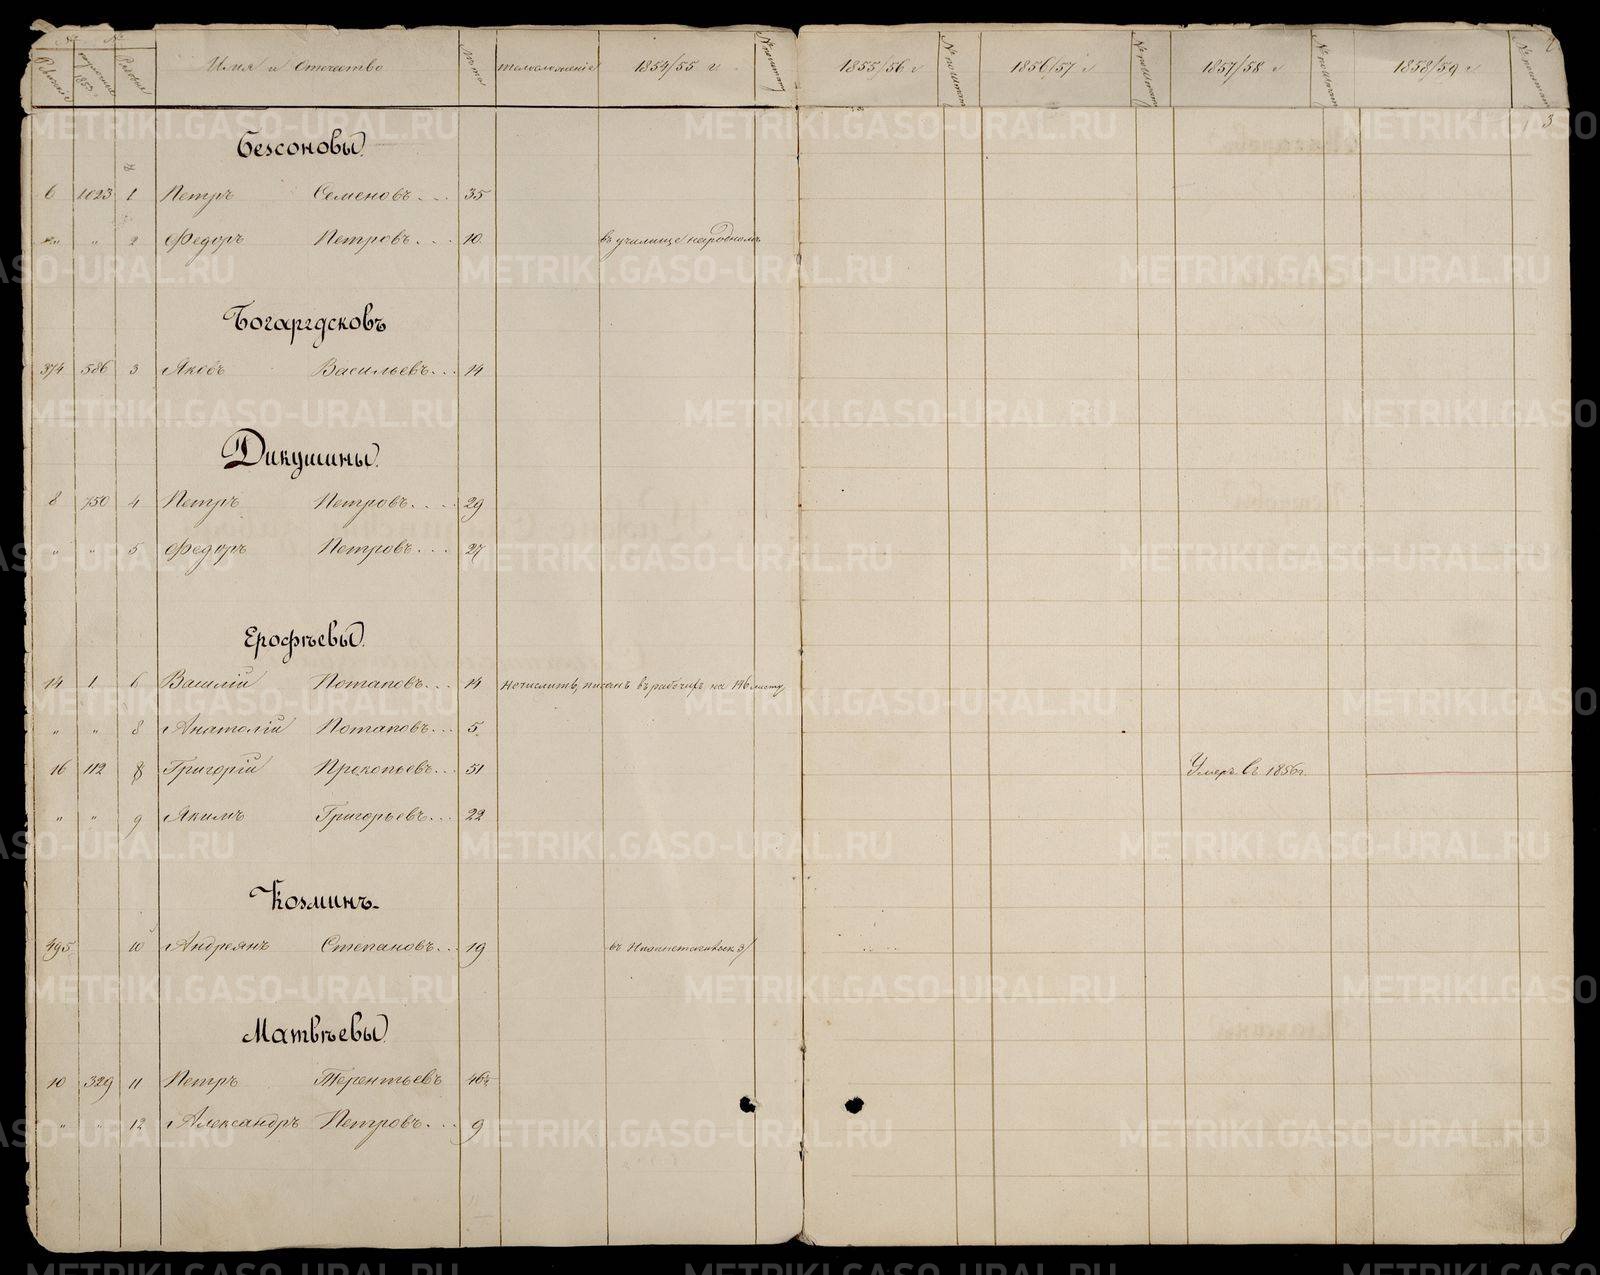 № №
Ревизскіе 1853 Рядовые Имя и Отчество Лѣта телосложеніе 1854/55 г № по штату 1855/56 г № по штату 1856/57 г № по штату 1857/58 г № по штату 1858/59 г № по штату
2
3
Безсоновы
6 1023 1 Петръ Семеновъ 35
" " 2 Федоръ Петровъ 10 въ училище
Богаргдсковъ
374 586 3 Яковъ Васильевъ 14
Дикушины
8 750 4 Петръ Петровъ 29
" " 5 Федоръ Петровъ 27
Ерофѣевы
14 1 6 Василій Потаповъ 14 нечислить, писанъ въ рабочихъ на 146 листу
" " 8 Анатолій Потаповъ 5
16 112 8 Григорій Прокопьевъ 51 Умеръ въ 1856 г.
" " 9 Якимъ Григорьевъ 22
Козминъ
495 10 Андреянъ Степановъ 19 въ
Матвѣевы
10 329 11 Петръ Терентьевъ 46
" " 12 Александръ Петровъ 9
METRIKI.GASO-URAL.RU